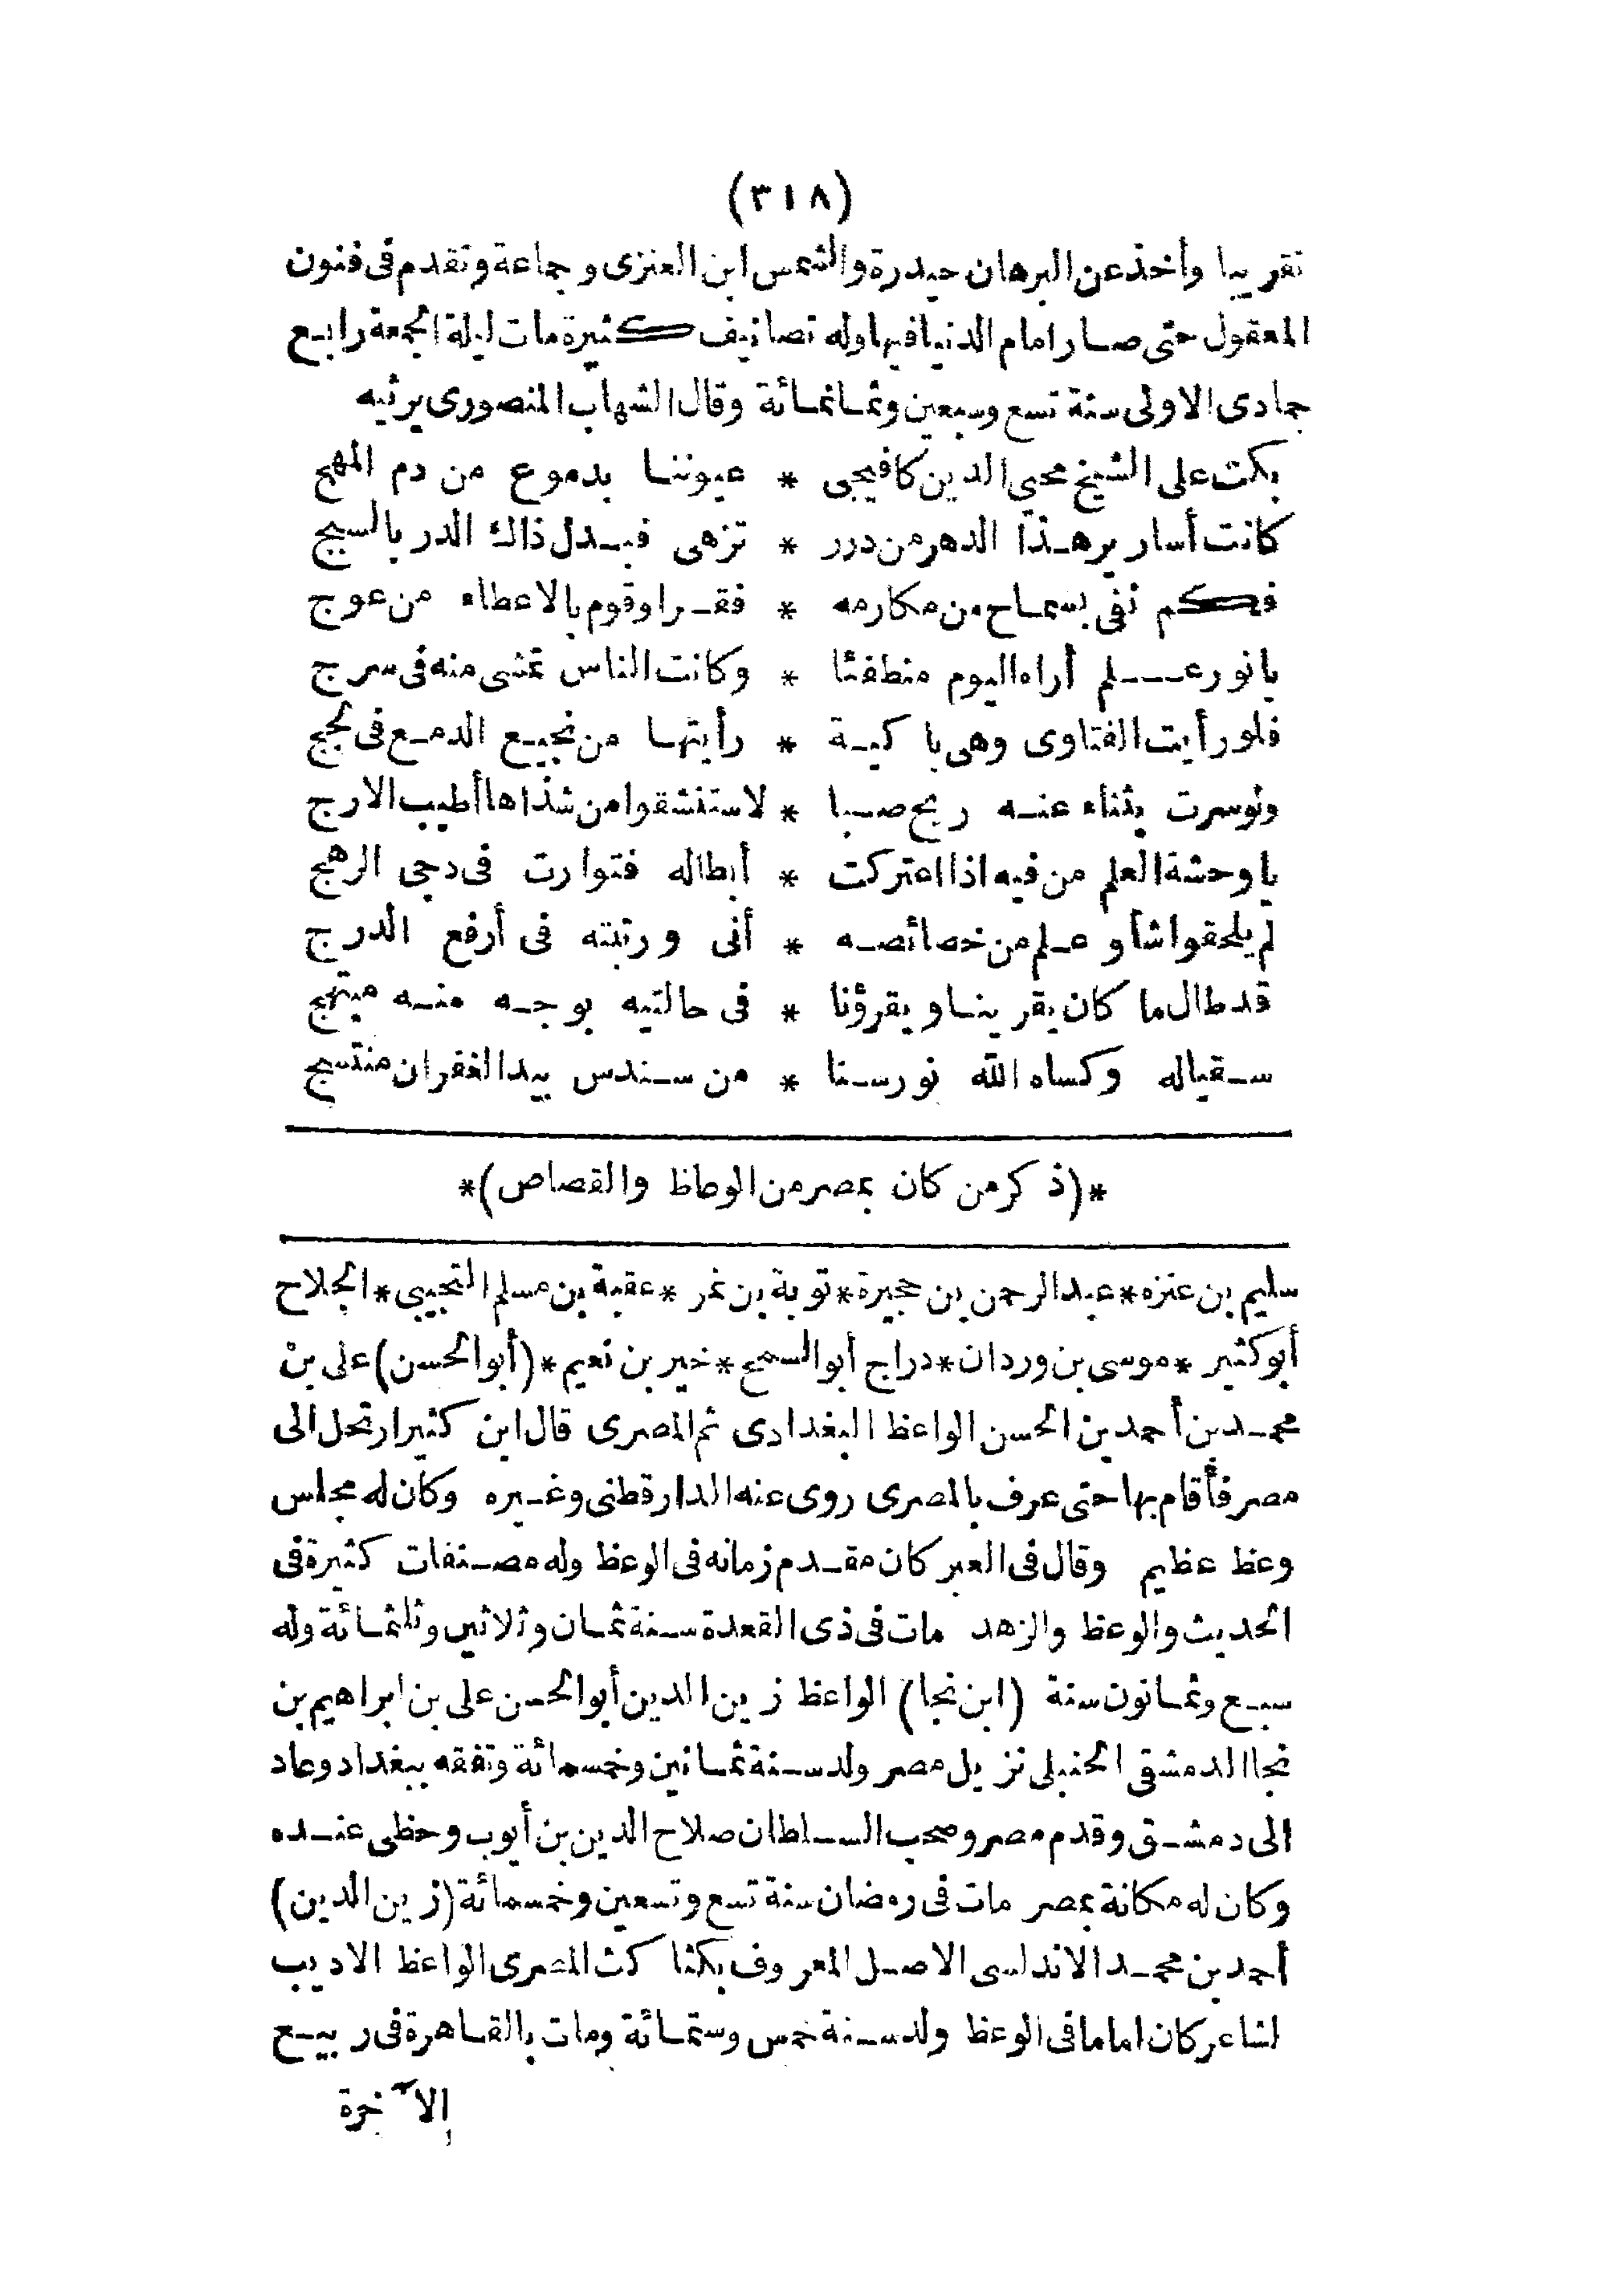 (٣١٨)
تقريبا وأخذ عن البرهان حيدرة والشمس ابن العنزى وجماعة وتقدم فى فنون
المعقول حتى صار امام الدنيا فيها وله تصانيف كثيرة مات ليلة الجمعة رابع
جمادى الاولى سنة تسع وسبعين وثمانمائة وقال الشهاب المنصورى يرثيه
بكت على الشيخ محيي الدين كافيجى * عيوننا بدموع من دم المهج
كانت أسارير هذا الدهر من درر * تزهى فبدل ذاك الدر بالسبج
فكم نفى بسماح من مكارمه * فقرا وقوم بالاعطاء من عوج
يا نور علم أراه اليوم منطفئا * وكانت الناس تمشى منه فى سرج
فلو رأيت الفتاوى وهى باكية * رأيتها من نجيع الدمع فى لجج
ولو سرت بثناء عنه ريح صبا * لاستنشقوا من شذاها أطيب الارج
يا وحشة العلم من فيه اذا اعتركت * أبطاله فتوارت فى دجى الرهج
لم يلحقوا شأو علم من خصائصه * أنى ورتبته فى أرفع الدرج
قد طال ما كان يقرينا ويقرؤنا * فى حالتيه بوجه منه مبتهج
سقيا له وكساه الله نور سنا * من سندس بيد الغفران منتسج
*(ذكر من كان بمصر من الوعاظ والقصاص)*
سليم بن عنزه * عبد الرحمن بن حجيرة * توبة بن نمر * عقبة بن مسلم التجيبى * الجلاح
أبو كثير * موسى بن وردان * دراج أبو السمح * خير بن نعيم * (أبو الحسن) على بن
محمد بن أحمد بن الحسن الواعظ البغدادى ثم المصرى قال ابن كثير ارتحل الى
مصر فأقام بها حتى عرف بالمصرى روى عنه الدارقطنى وغيره وكان له مجلس
وعظ عظيم وقال فى العبر كان مقدم زمانه فى الوعظ وله مصنفات كثيرة فى
الحديث والوعظ والزهد مات فى ذى القعدة سنة ثمان وثلاثين وثلثمائة وله
سبع وثمانون سنة (ابن نجا) الواعظ زين الدين أبو الحسن على بن ابراهيم بن
نجا الدمشقى الحنبلى نزيل مصر ولد سنة ثمانين وخمسمائة وتفقه ببغداد وعاد
الى دمشق وقدم مصر وصحب السلطان صلاح الدين بن أيوب وحظى عنده
وكان له مكانة بمصر مات فى رمضان سنة تسع وتسعين وخمسمائة (زين الدين)
أحمد بن محمد الاندلسى الاصل المعروف بكتاكت المصرى الواعظ الاديب
لشاعر كان اماما فى الوعظ ولد سنة خمس وستمائة ومات بالقاهرة فى ربيع
الآخرة